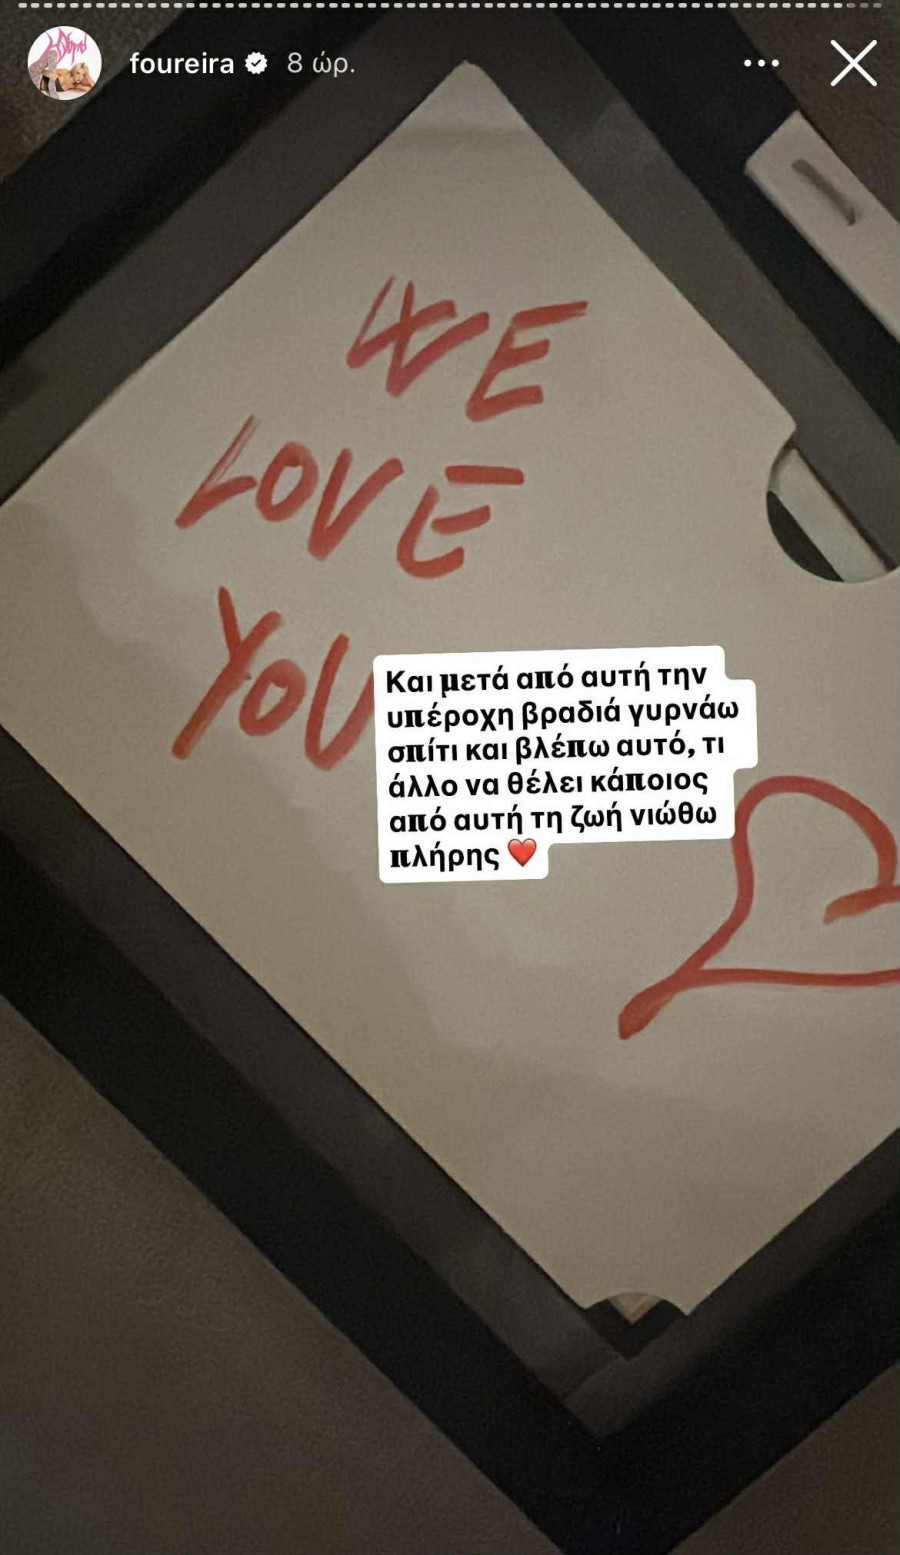 foureira 8 ώρ.
WE
LOVE
YOU
Και μετά από αυτή την
υπέροχη βραδιά γυρνάω
σπίτι και βλέπω αυτό, τι
άλλο να θέλει κάποιος
από αυτή τη ζωή νιώθω
πλήρης ❤️